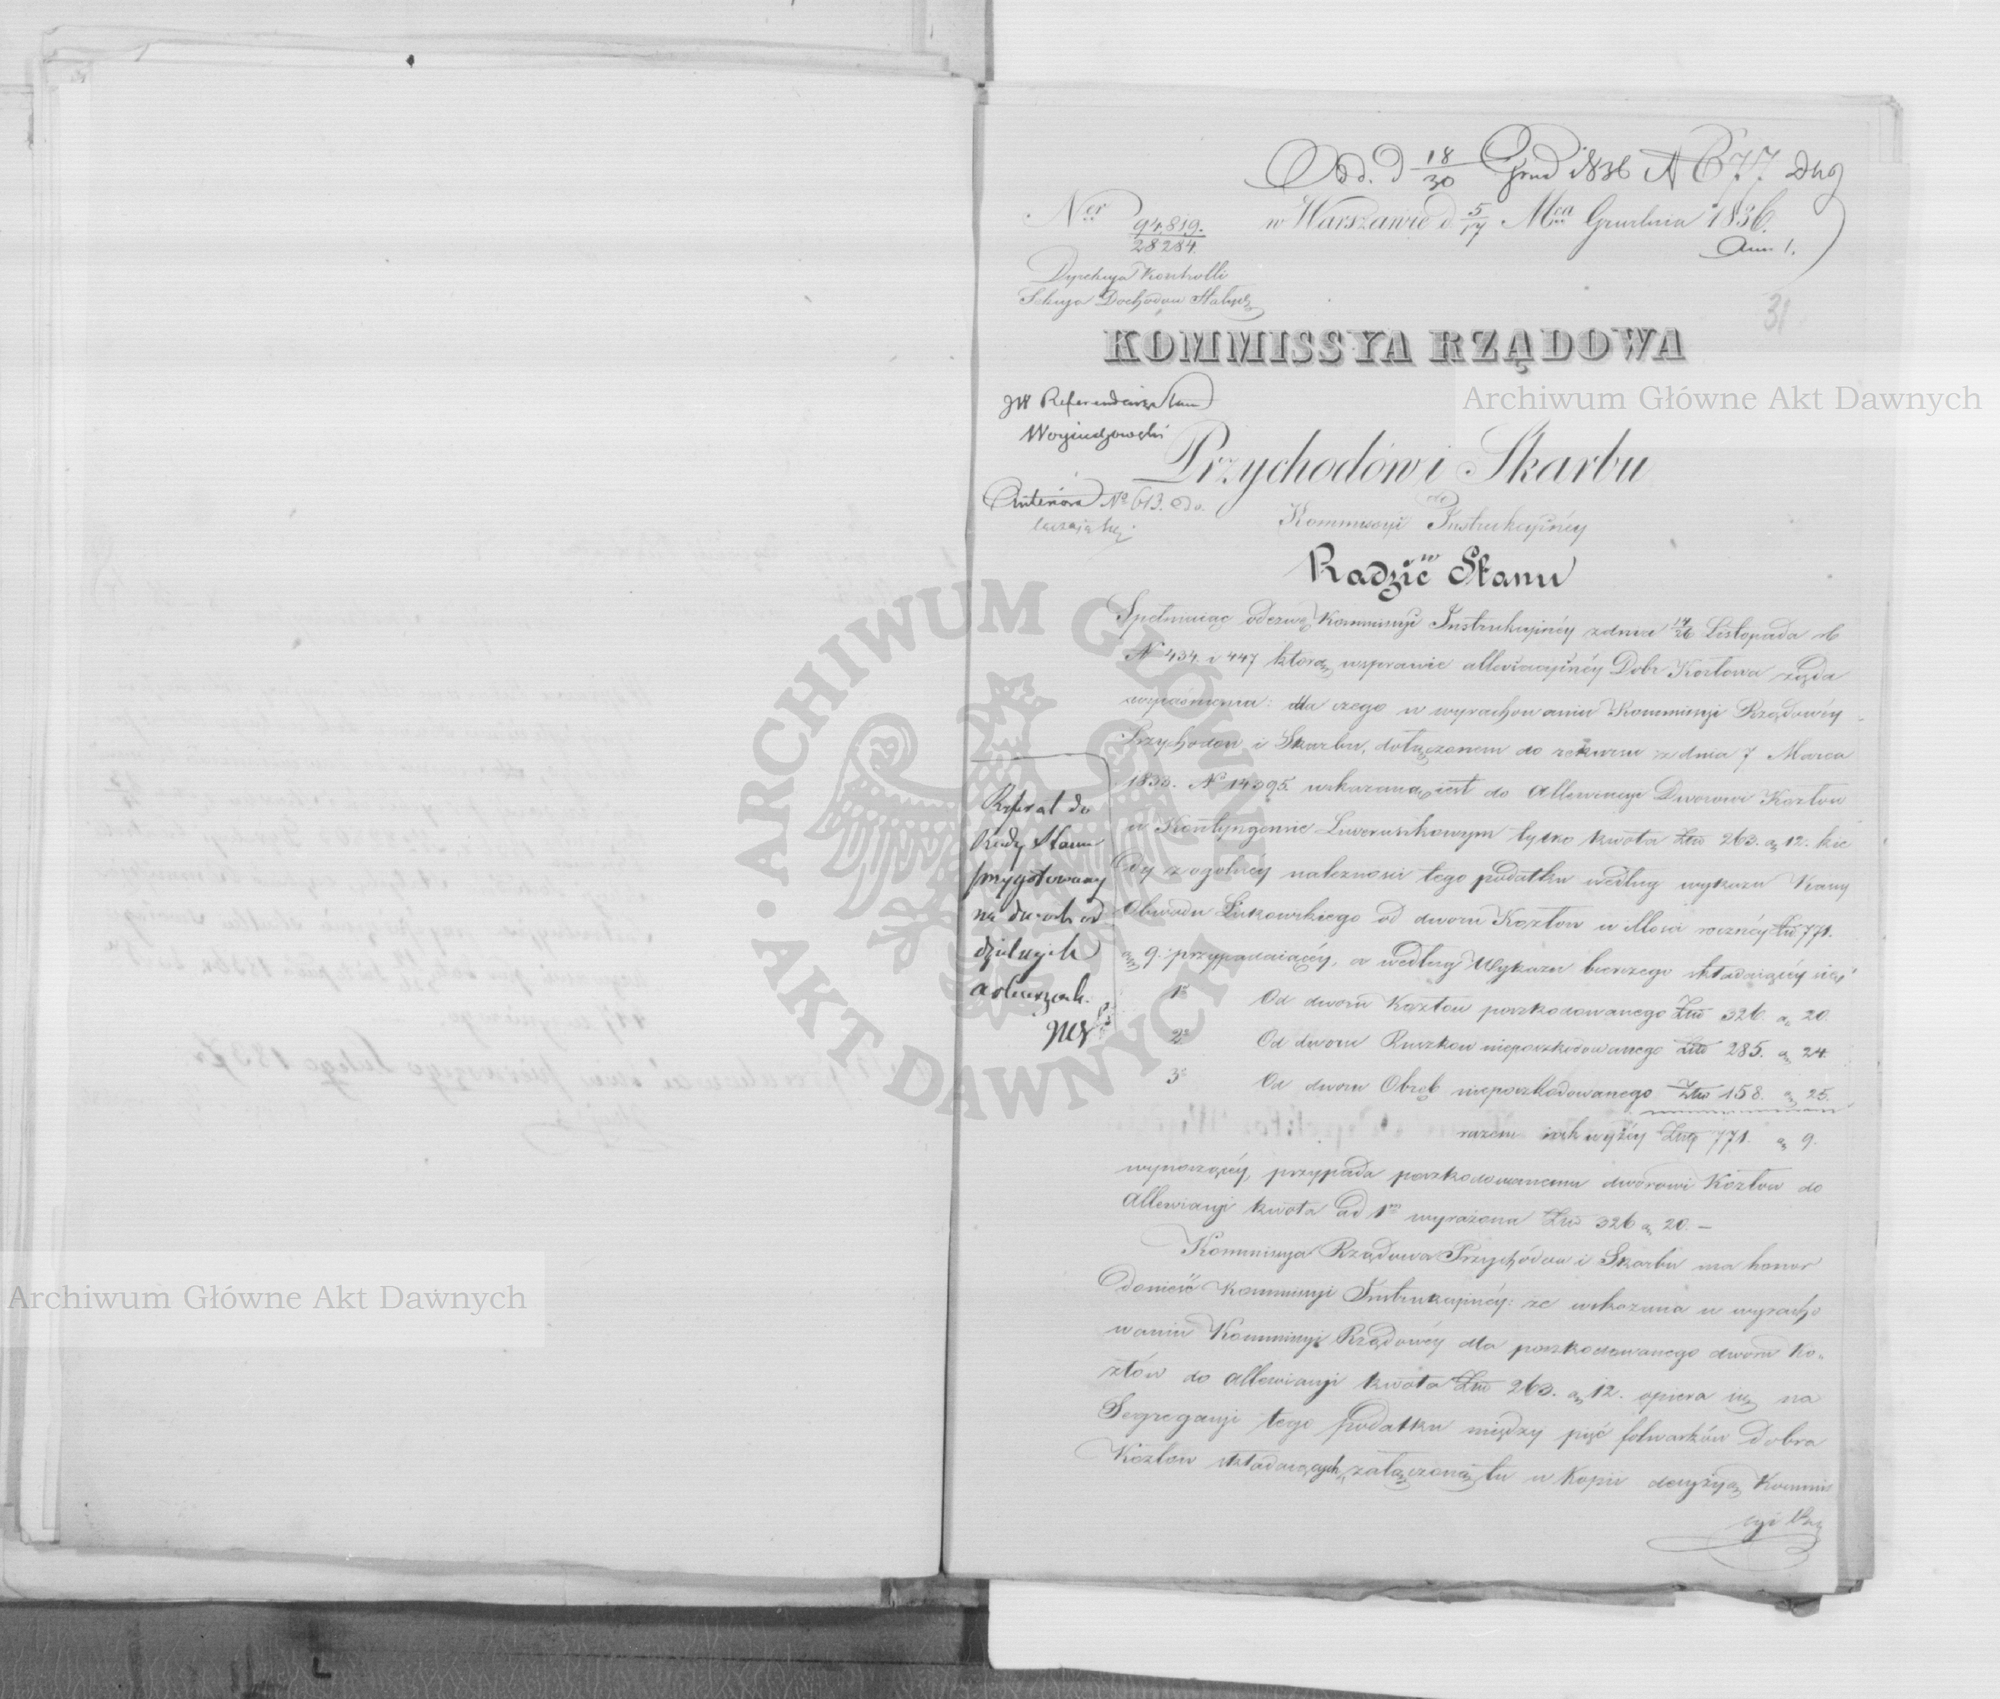 Od. d 18/30 Grud 1836 N 677 Dług
Ner 94,819./28284.
w Warszawie d 5/17 Mca Grudnia 1836.
Ann 1.
Dyrekcya Kontrolli
Sekcya Dochodów Stałych
31
KOMMISSYA RZĄDOWA
JW Referendarz Stanu
Woyciechowski
Przychodów i Skarbu
Anteriora No 613. do
do
Kommissyi Instrukcyinéy
w
Radzie Stanu
Spełniaiąc odezwę Kommissyi Instrukcyinéy z dnia 14/26 Listopada r b
N 434. i 447 którą w sprawie allewiacyinéy Dobr Kozłowa żąda
wyiaśnienia: dla czego w wyrachowaniu Kommissyi Rządowéy
Przychodow i Skarbu, dołączonem do rekursu z dnia 7 Marca
1833. N 14395. wskazaną iest do Allewiacyi Dworowi Kozłow
w Kontyngensie Liwerunkowym tylko kwota Złp 263. gr 12. kie
dy z ogolnéy należności tego podatku według wykazu Kassy
Obwodu Łukowskiego od dworu Kozłow w ilości rocznéy Złp 771.
gr 9. przypadaiącéy, a według Wykazu bierczego składaiącéy się
1o Od dworu Kozłow poszkodowanego Złp 326. gr 20.
2o Od dworu Ruszkow nieposzkodowanego Złp 285. gr 24.
3o Od dworu Obrąb nieposzkodowanego Złp 158. gr 25.
razem iak wyżéy Złp 771. gr 9.
wynoszącéy, przypada poszkodowanemu dworowi Kozłow do
Allewiacyi kwota ad 1m wyrażona Złp 326 gr 20. –
Kommissya Rządowa Przychodów i Skarbu ma honor
donieść Kommissyi Instrukcyinéy: że wskazana w wyracho
waniu Kommissyi Rządowéy dla poszkodowanego dworu Ko-
złów do allewiacyi kwota Złp 263. gr 12. opiera się na
Segregacyi tego podatku między pięć folwarków Dobra
Kozłow składaiących, załączoną tu w Kopii decyzyą Kommis
syi
Referat do
Rady Stanu
przygotowany
na dwoch od
dzielnych
arkuszach.
ARCHIWUM GŁÓWNE
AKT DAWNYCH
Archiwum Główne Akt Dawnych
Archiwum Główne Akt Dawnych